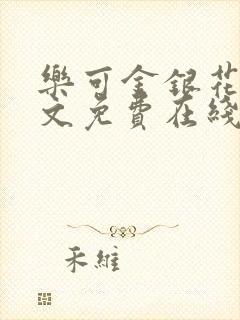 樂可金銀花
文免費在綫
禾維